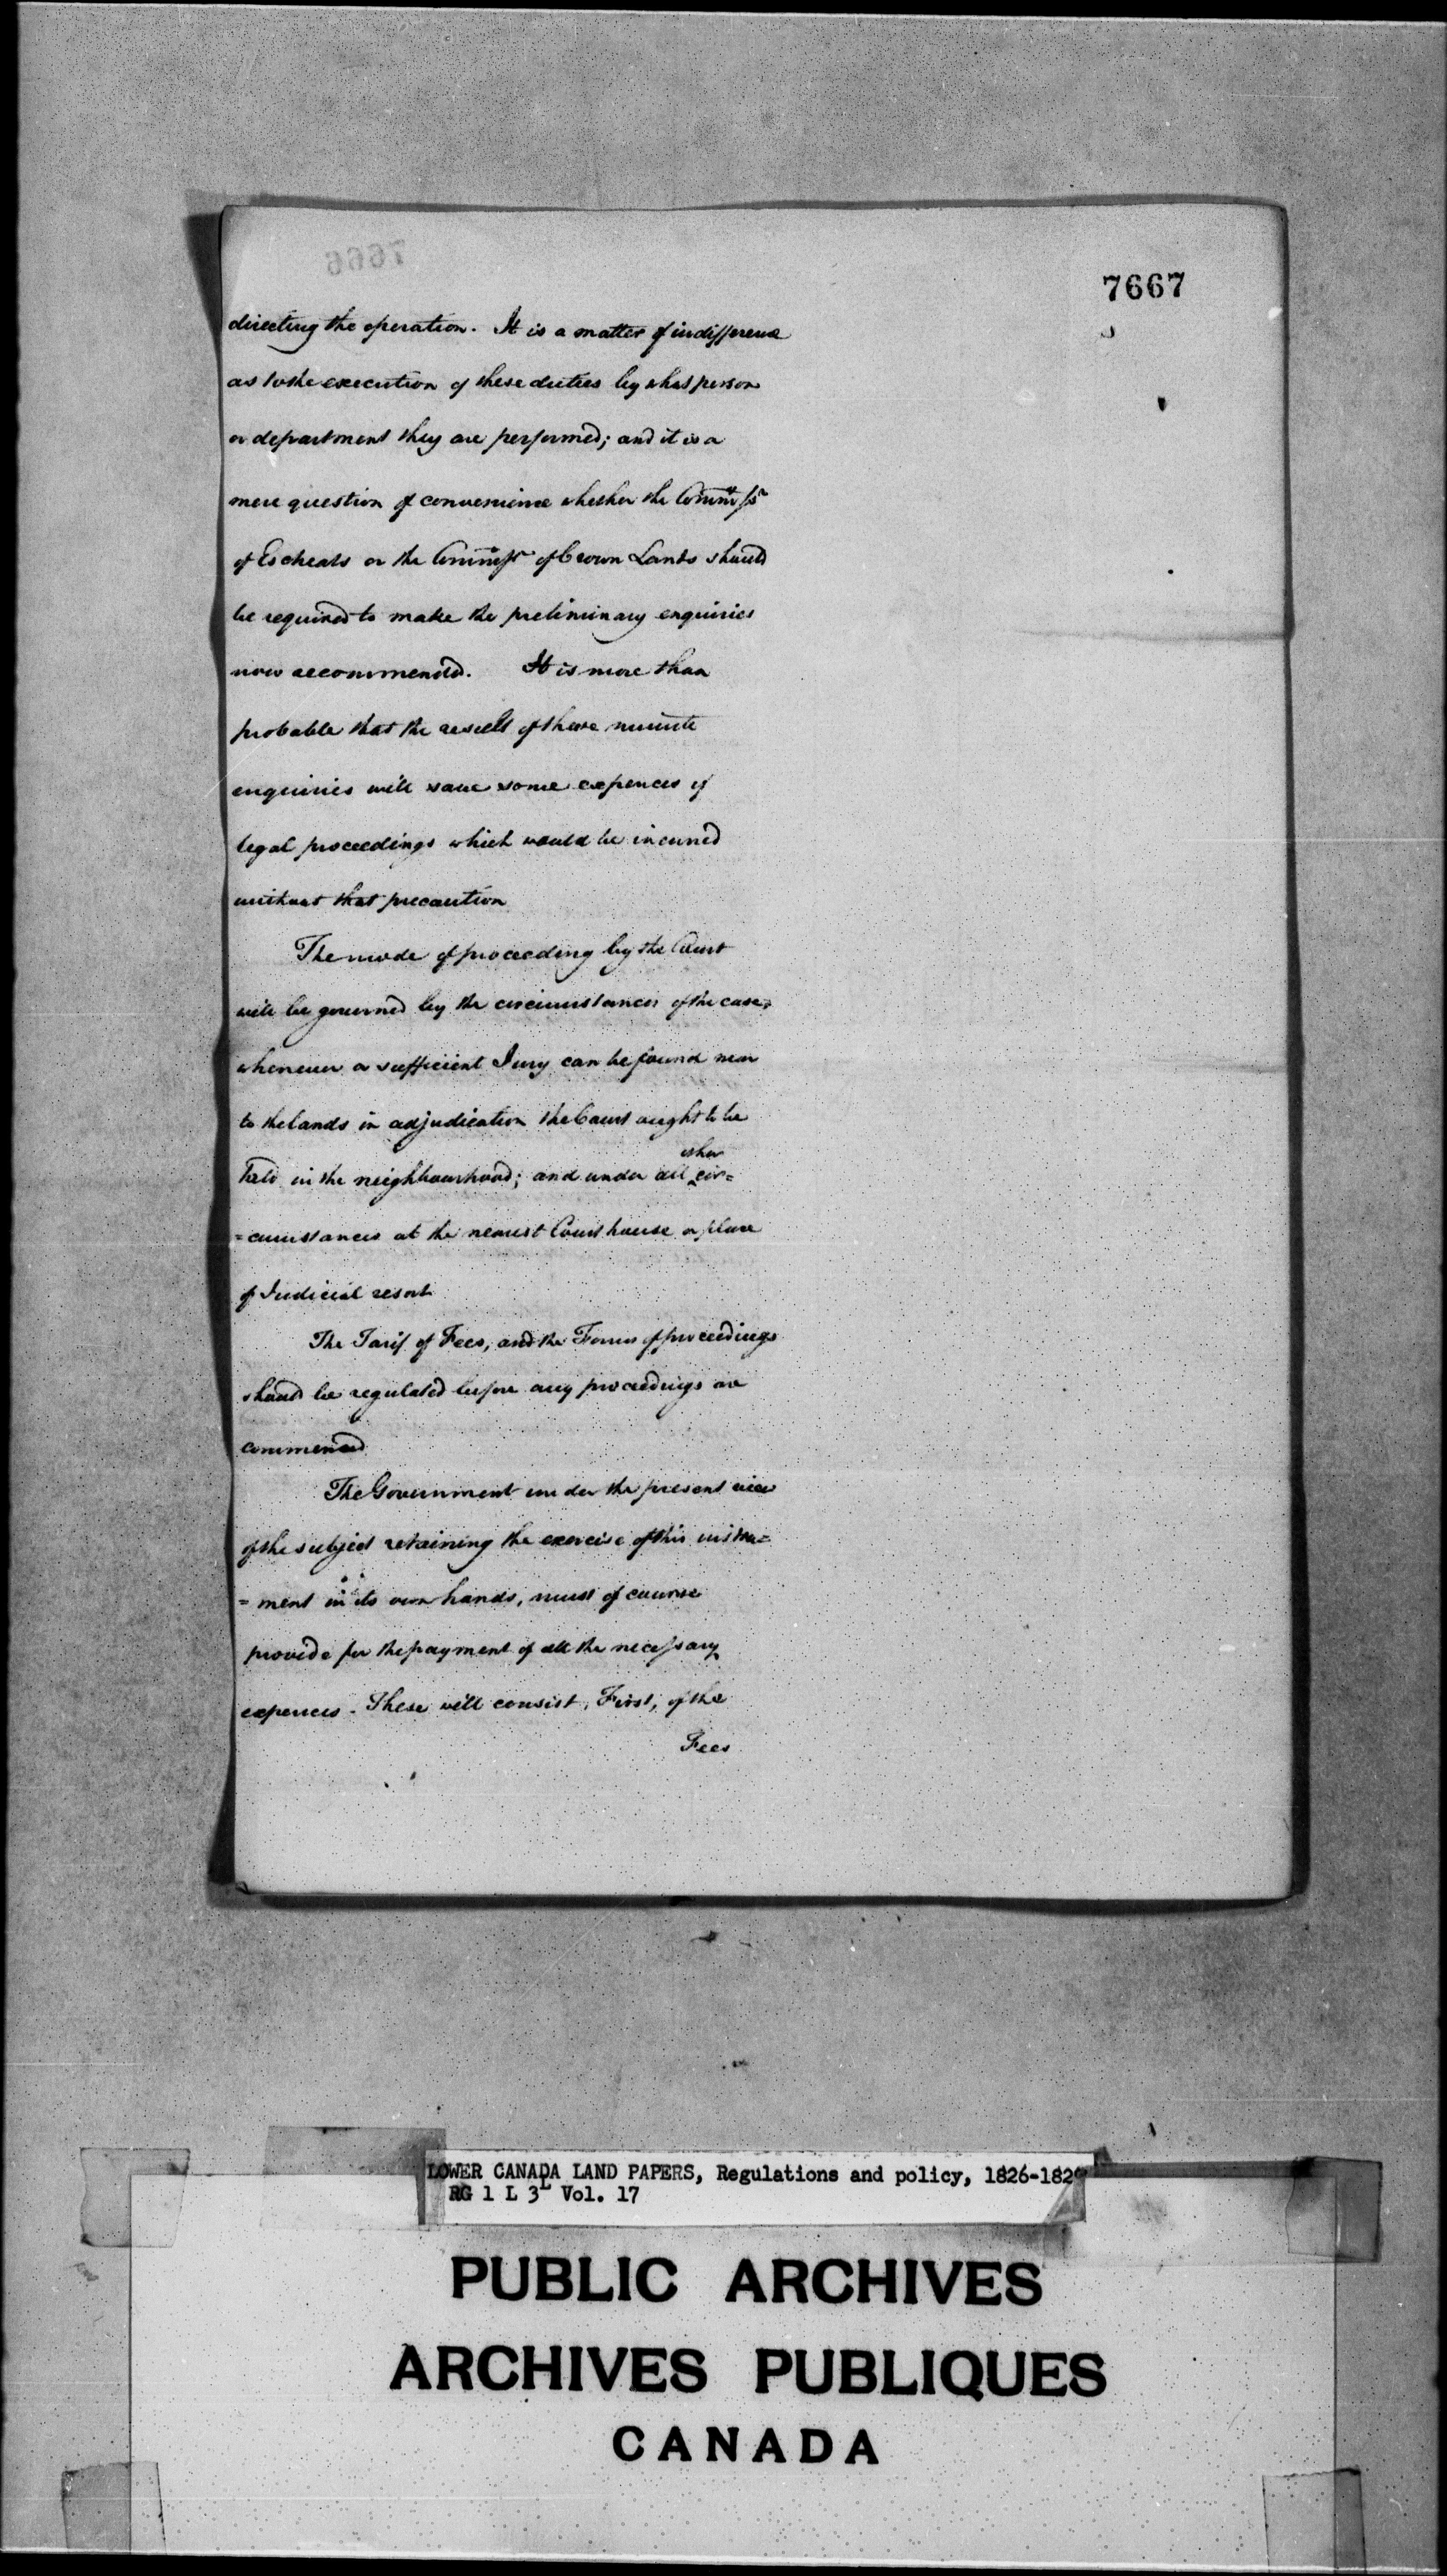 7667
directing the operation. It is a matter of indifference
as to the execution of these duties by what person
or department they are performed; and it is a
mere question of convenience whether the Commissr
of Escheats or the Commissr of Crown Lands should
be required to make the preliminary enquiries
now recommended. It is more than
probable that the result of these minute
enquiries will save some expences of
legal proceedings which would be incurred
without that precaution
The mode of proceeding by the Court
will be governed by the circumstances of the case,
whenever a sufficient Jury can be found near
to the lands in adjudication the Court ought to be
held in the neighbourhood; and under all other cir=
=cumstances at the nearest Court house or place
of Judicial resort
The Tarif of Fees, and the Forms of proceedings
should be regulated before any proceedings are
commenced
The Government under the present view
of the subject retaining the exercise of this instru=
=ment in its own hands, must of course
provide for the payment of all the necessary
expences. These will consist, First, of the
Fees
LOWER CANADA LAND PAPERS, Regulations and policy, 1826-182
RG 1 L 3L Vol. 17
PUBLIC ARCHIVES
ARCHIVES PUBLIQUES
CANADA